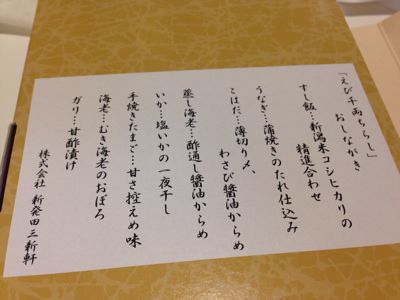 「えび千両ちらし」
おしながき
すし飯…新潟米コシヒカリの
精進合わせ
うなぎ…蒲焼きのたれ仕込み
こはだ…薄切り〆、
わさび醤油からめ
蒸し海老…酢通し醤油からめ
いか…塩いかの一夜干し
手焼きたまご…甘さ控えめ味
海老…むき海老のおぼろ
ガリ…甘酢漬け
株式会社 新発田三新軒